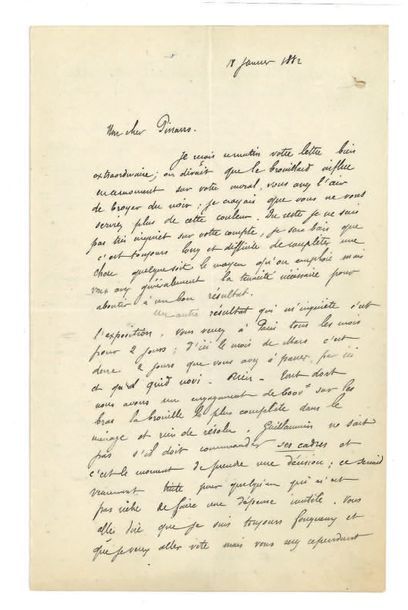 18 Janvier 1882
Mon cher Pissarro.
Je reçois ce matin votre lettre bien
extraordinaire ; on dirait que le brouillard influe
énormément sur votre moral, vous avez l'air
de broyer du noir ; je croyais que vous ne vous
serviez plus de cette couleur. Du reste je ne suis
pas très inquiet sur votre compte, je sais bien que
c'est toujours long et difficile de compléter une
chose quelque soit le moyen qu'on emploie mais
vous avez généralement la tenacité nécessaire pour
aboutir à un bon résultat.
Un autre résultat qui m'inquiète c'est
l'exposition. Vous venez à Paris tous les mois
pour 2 jours ; d'ici le mois de Mars c'est
donc 2 jours que vous avez à passer ici
et qu'd quid novi. - Rien - Tout dort
nous avons un engagement de 6000 f sur les
bras la brouille la plus complète dans le
ménage et rien de résolu. Guillaumin ne sait
pas s'il doit commander ses cadres et
c'est le moment de prendre une décision ; ce serait
vraiment triste pour quelqu'un qui n'est
pas riche de faire une dépense inutile. Vous
allez dire que je suis toujours fougueux et
que je veux aller vite mais vous avez cependant